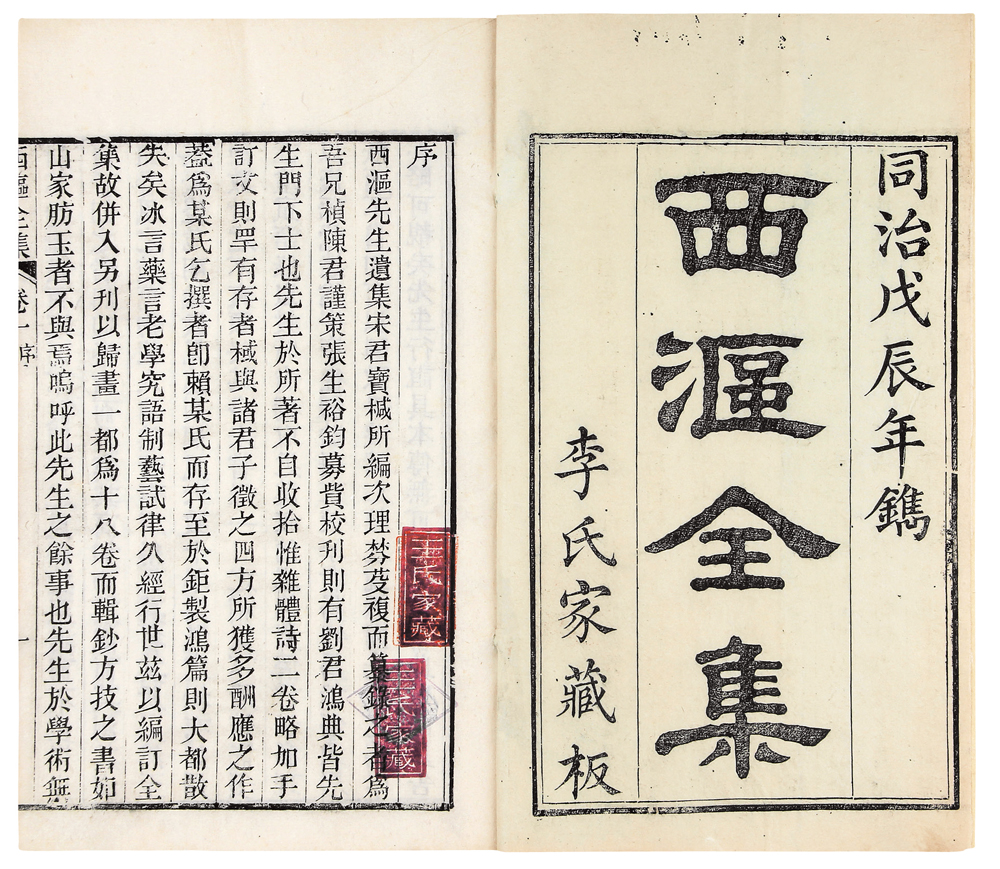 同治戊辰年鐫
西漚全集
李氏家藏板
序
西漚先生遺集宋君寶椷所編次理棼芟複而纂錄之者爲
吾兄楨陳君謹策張生裕鈞募貲校刋則有劉君鴻典皆先
生門下士也先生於所著不自收拾惟雜體詩二卷略加手
訂文則罕有存者棫與諸君子徵之四方所獲多酬應之作
葢爲某氏乞撰者卽賴某氏而存至於鉅製鴻篇則大都散
失矣冰言藥言老學究語制藝試律久經行世玆以編訂全
集故併入另刋以歸畫一都爲十八卷而輯鈔方技之書如
山家肪玉者不與焉嗚呼此先生之餘事也先生於學術無
西漚全集
卷一序
一
王氏家藏
王氏家藏